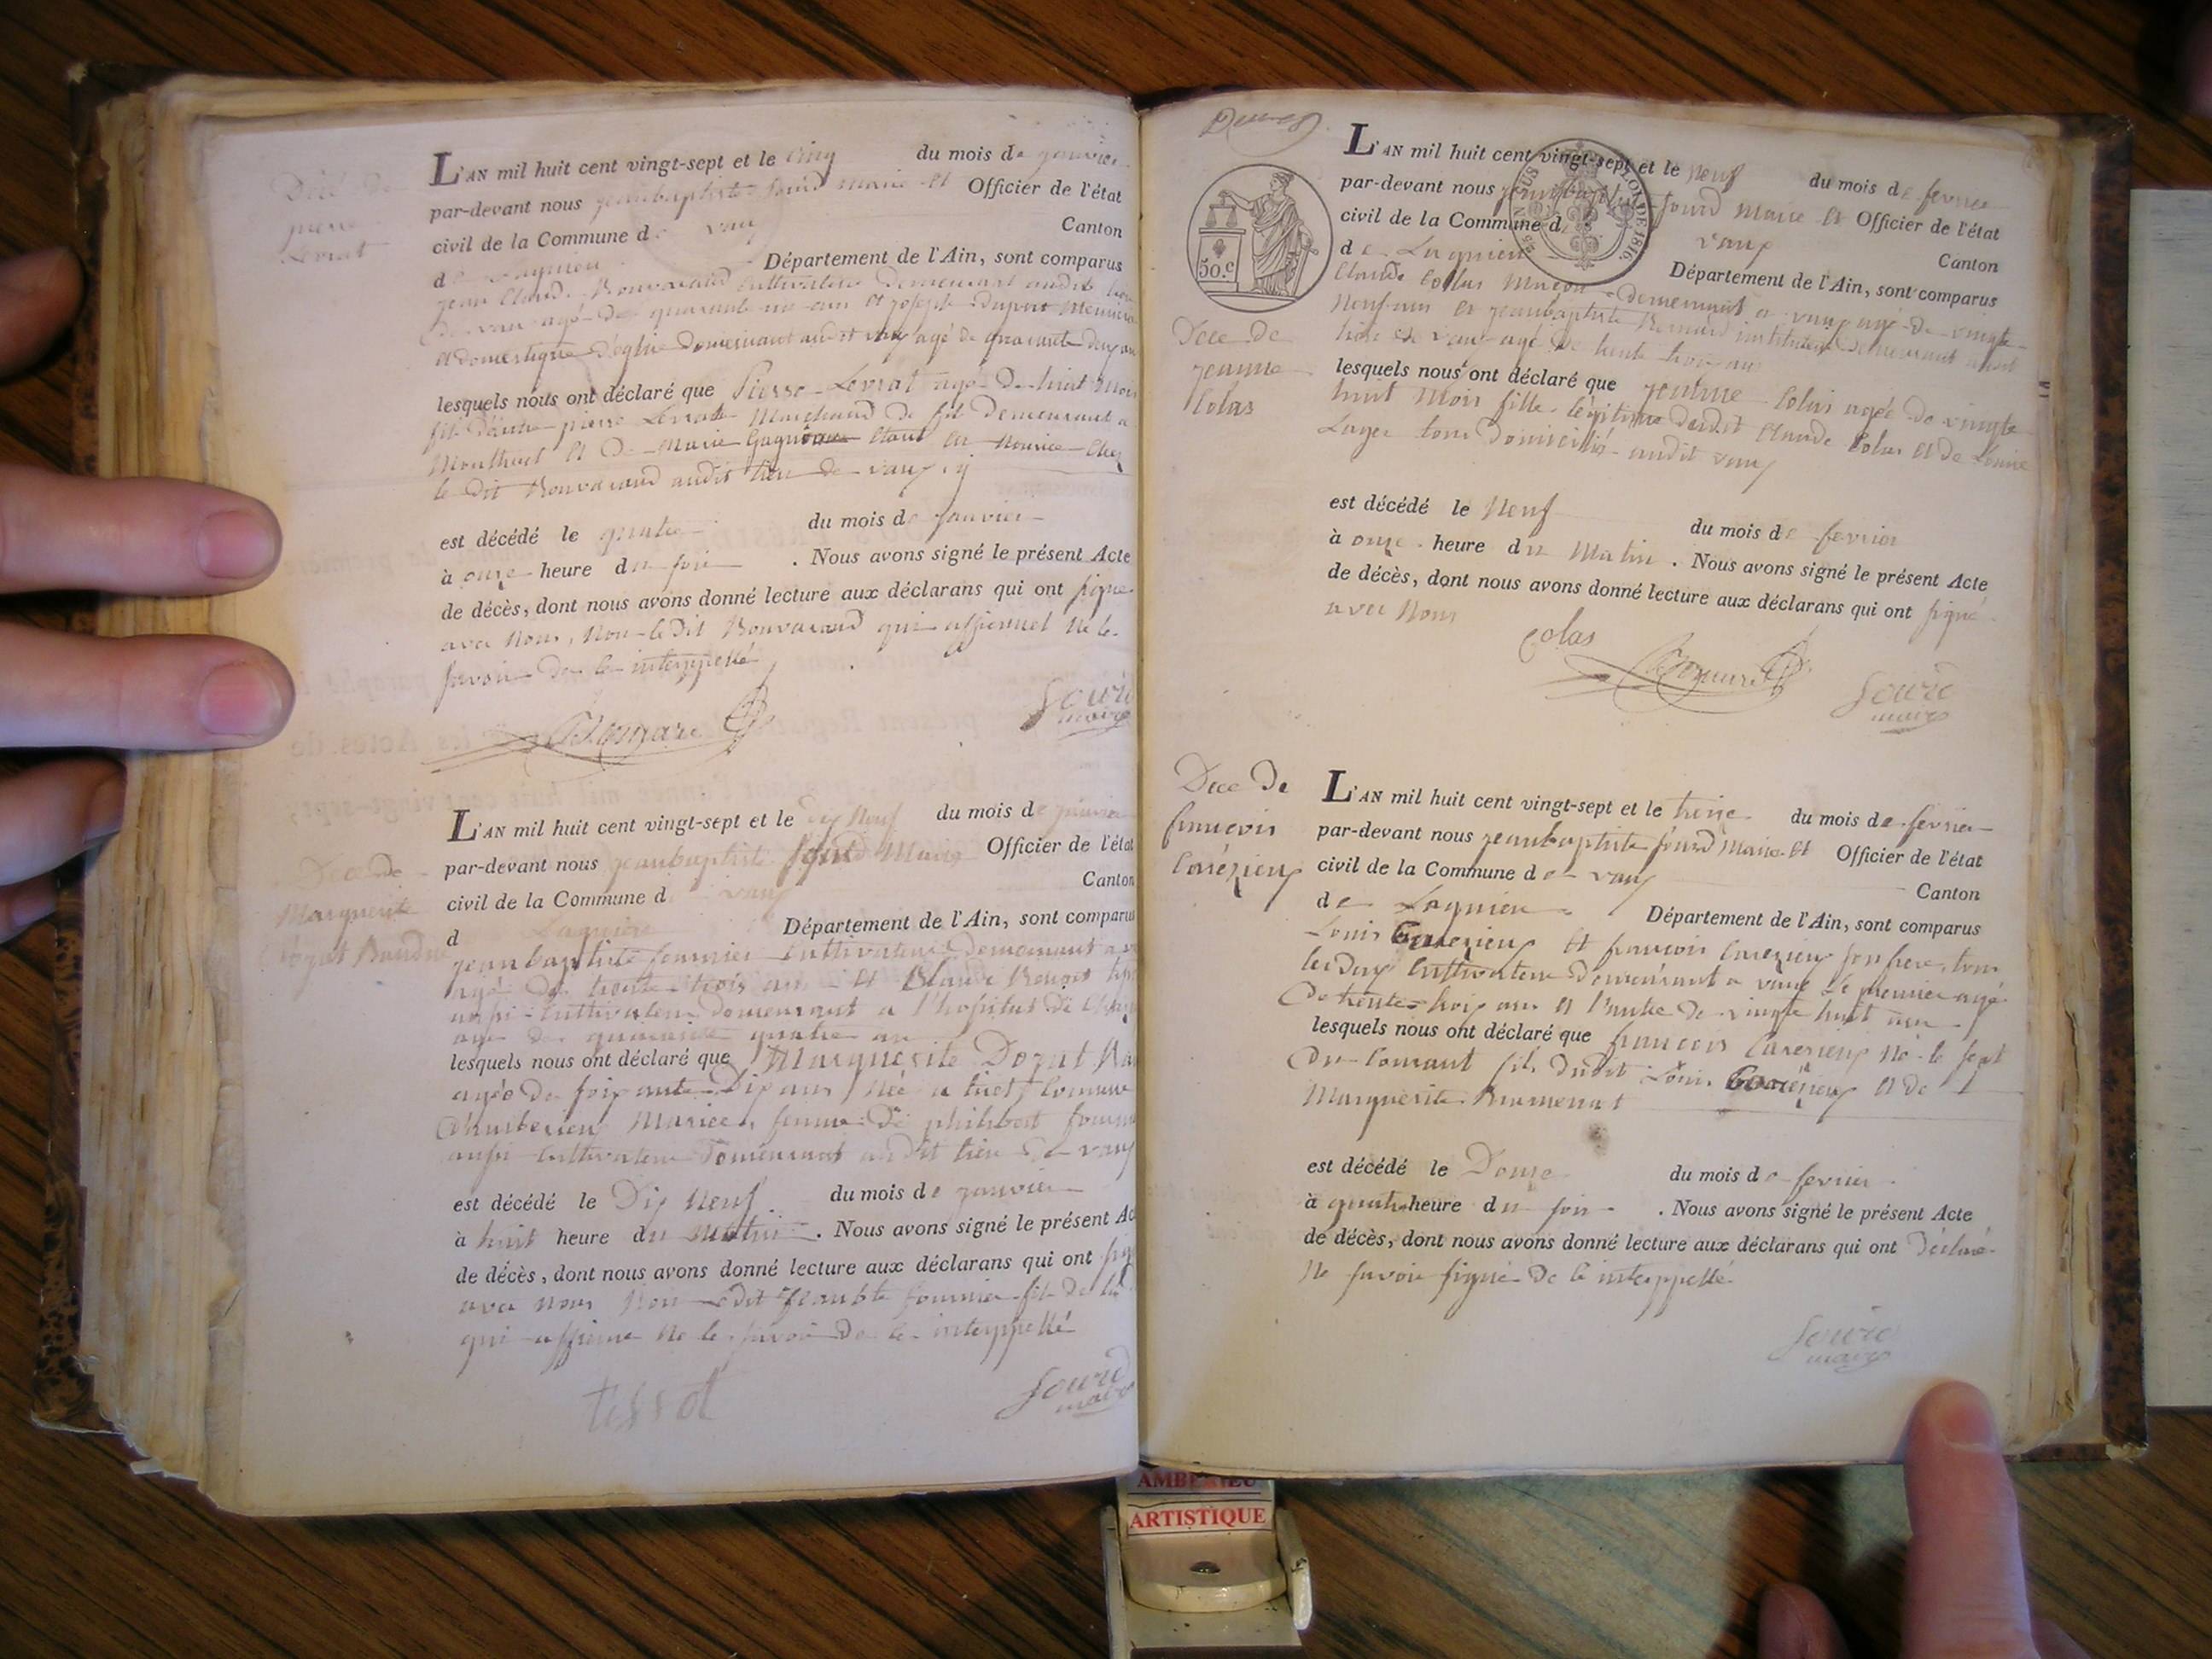 Décè de
pierre
Levrat
L'AN mil huit cent vingt-sept et le cinq du mois de janvier
par-devant nous jeanbaptiste Sourd maire et Officier de l'état
civil de la Commune de vaux Canton
de Lagnieu Département de l'Ain, sont comparus
jean Claude Bouvarand cultivateur demeurant audit lieu
de vaux agé de quarante un ans et joseph dupont Menuisier
et domestique d'eglise demeurant audit vaux agé de quarante deux ans
lesquels nous ont déclaré que Pierre Levrat agé de huit mois
fils d'autre pierre Levrat Marchand de fil demeurant a
Montluel et de Marie étant en Nourice chez
le dit Bouvarand audit lieu de vaux
est décédé le quatre du mois de janvier
à onze heure du soir . Nous avons signé le présent Acte
de décès, dont nous avons donné lecture aux déclarans qui ont signé
avec nous, Non le dit Bouvarand qui affermet ne le
savoir de ce interppellé
Sourd
maire
Dece de
Marguerite
L'AN mil huit cent vingt-sept et le dix Neuf du mois de janvier
par-devant nous jeanbaptiste Sourd Maire Officier de l'état
civil de la Commune de vaux Canton
d Lagnieu Département de l'Ain, sont comparus
jeanbaptiste fournier Cultivateur demeurant a
agé de trente trois ans et Claude Benoit
aussi Cultivateur demeurant a l'hopitas de
agé de quarante quatre an
lesquels nous ont déclaré que Marguerite Dozut
agée de soixante Dix ans Née a tiret Comune
Marice, femme de philibert
aussi Cultivateur Demeurant audit lieu de vaux
est décédé le Dix Neuf du mois de janvier
à huit heure du Matin . Nous avons signé le présent
de décès, dont nous avons donné lecture aux déclarans qui ont
avec nous Non ledit Jeanbte fournier fils de la
qui affirme Ne le savoir de ce interppellé
tissot
Sourd
maire
50.c
TIMBRE
L'AN mil huit cent vingt-sept et le Neuf du mois de fevrier
par-devant nous jeanbaptiste Sourd Maire et Officier de l'état
civil de la Commune de vaux Canton
de Lagnieu Département de l'Ain, sont comparus
Claude Colas Maçon demeurant a vaux agé de vingte
Neuf ans et jeanbaptiste Bernard instituteur demeurant audit
lieu de vaux agé de trente trois ans
Dece de
jeanne
Colas
lesquels nous ont déclaré que jeanne Colas agée de vingte
huit Mois fille légitime dudit Claude Colas et de Louise
Luger tous domiciliés audit vaux
est décédé le Neuf du mois de fevrier
à onze heure du Matin . Nous avons signé le présent Acte
de décès, dont nous avons donné lecture aux déclarans qui ont signé
avec Nous
Colas
Sourd
maire
Dece De
francois
Carézieux
L'AN mil huit cent vingt-sept et le treize du mois de fevrier
par-devant nous jeanbaptiste Sourd Maire et Officier de l'état
civil de la Commune de vaux Canton
de Lagnieu Département de l'Ain, sont comparus
Louis Carezieux et francois Carezieux son frere, tous
les deux Cultivateur demeurant a vaux le premier agé
de trente trois ans et l'autre de vingte huit ans
lesquels nous ont déclaré que francois Carezieux Né le sept
du Courant fils dudit Louis Carézieux et de
Marguerite Brumenat
est décédé le Douze du mois de fevrier
à quatre heure du soir . Nous avons signé le présent Acte
de décès, dont nous avons donné lecture aux déclarans qui ont déclaré
Ne savoir signé de ce interppellé
Sourd
maire
AMBERIEU
ARTISTIQUE